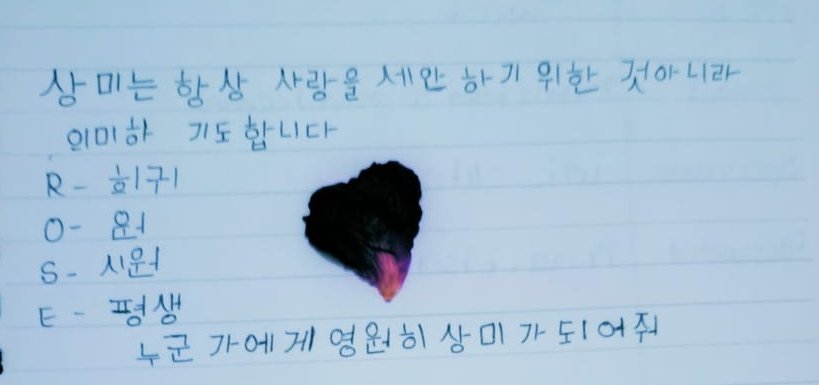 상미는 항상 사랑을 세안 하기 위한 것아니라
의미하 기도합니다
R - 희귀
O - 원
S - 시원
E - 평생
누군 가에게 영원히 상미 가 되어줘